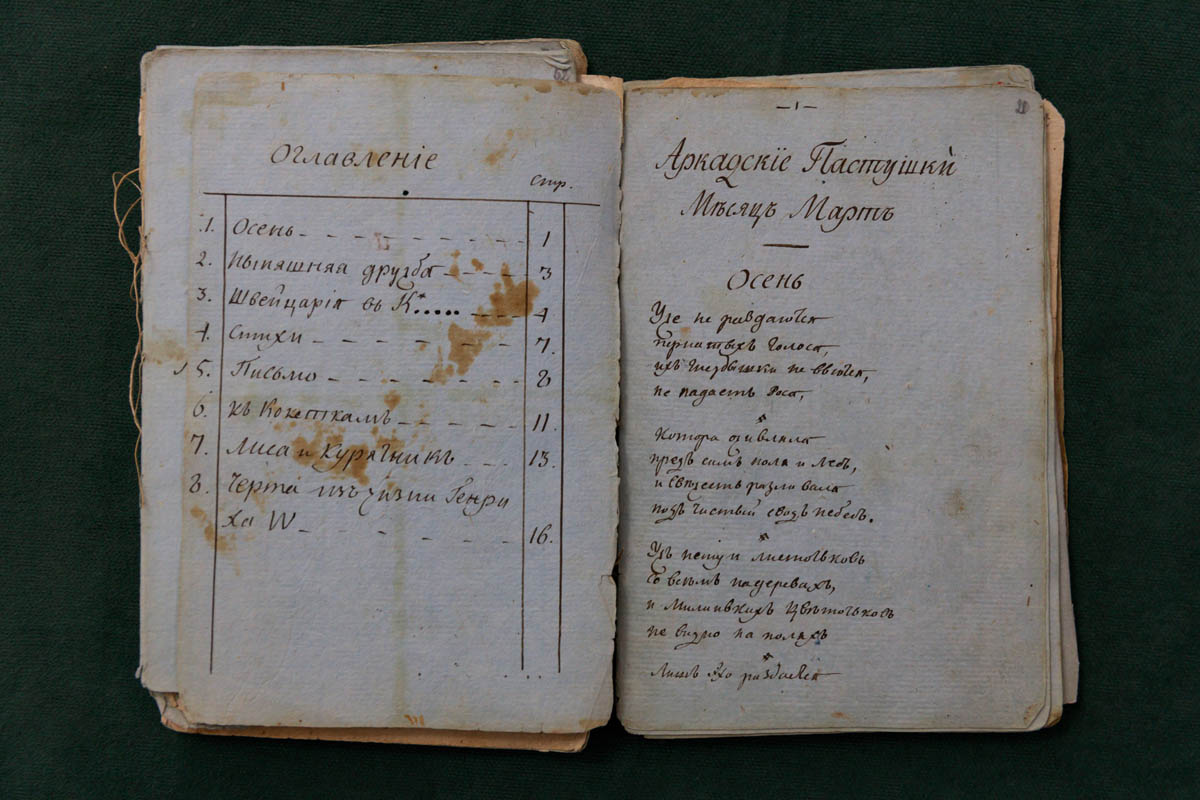 Оглавленіе
Стр.
1. Осень 1
2. Нынѣшняя дружба 3
3. Швейцарія въ К..... 4
4. Стихи 7.
5. Письмо 8
6. Къ Кокеткамъ 11.
7. Лиса и Курятникъ 13.
8. Черта изъ жизни Генри
ха IV 16.
— 1 —
Аркадскіе Пастушки
Мѣсяцъ Мартъ
Осень
Уже не раздаются
пернатыхъ голоса,
ихъ гнездышки не вьются,
не падаетъ роса,
Котора оживляла
предъ симъ поля и лесъ,
и свѣжесть разливала
подъ чистый сводъ небесъ.
Ужъ нету и листочковъ
со всемъ на деревахъ,
и миленькихъ цвѣточковъ
не видно на поляхъ
Лишь эхо раздается